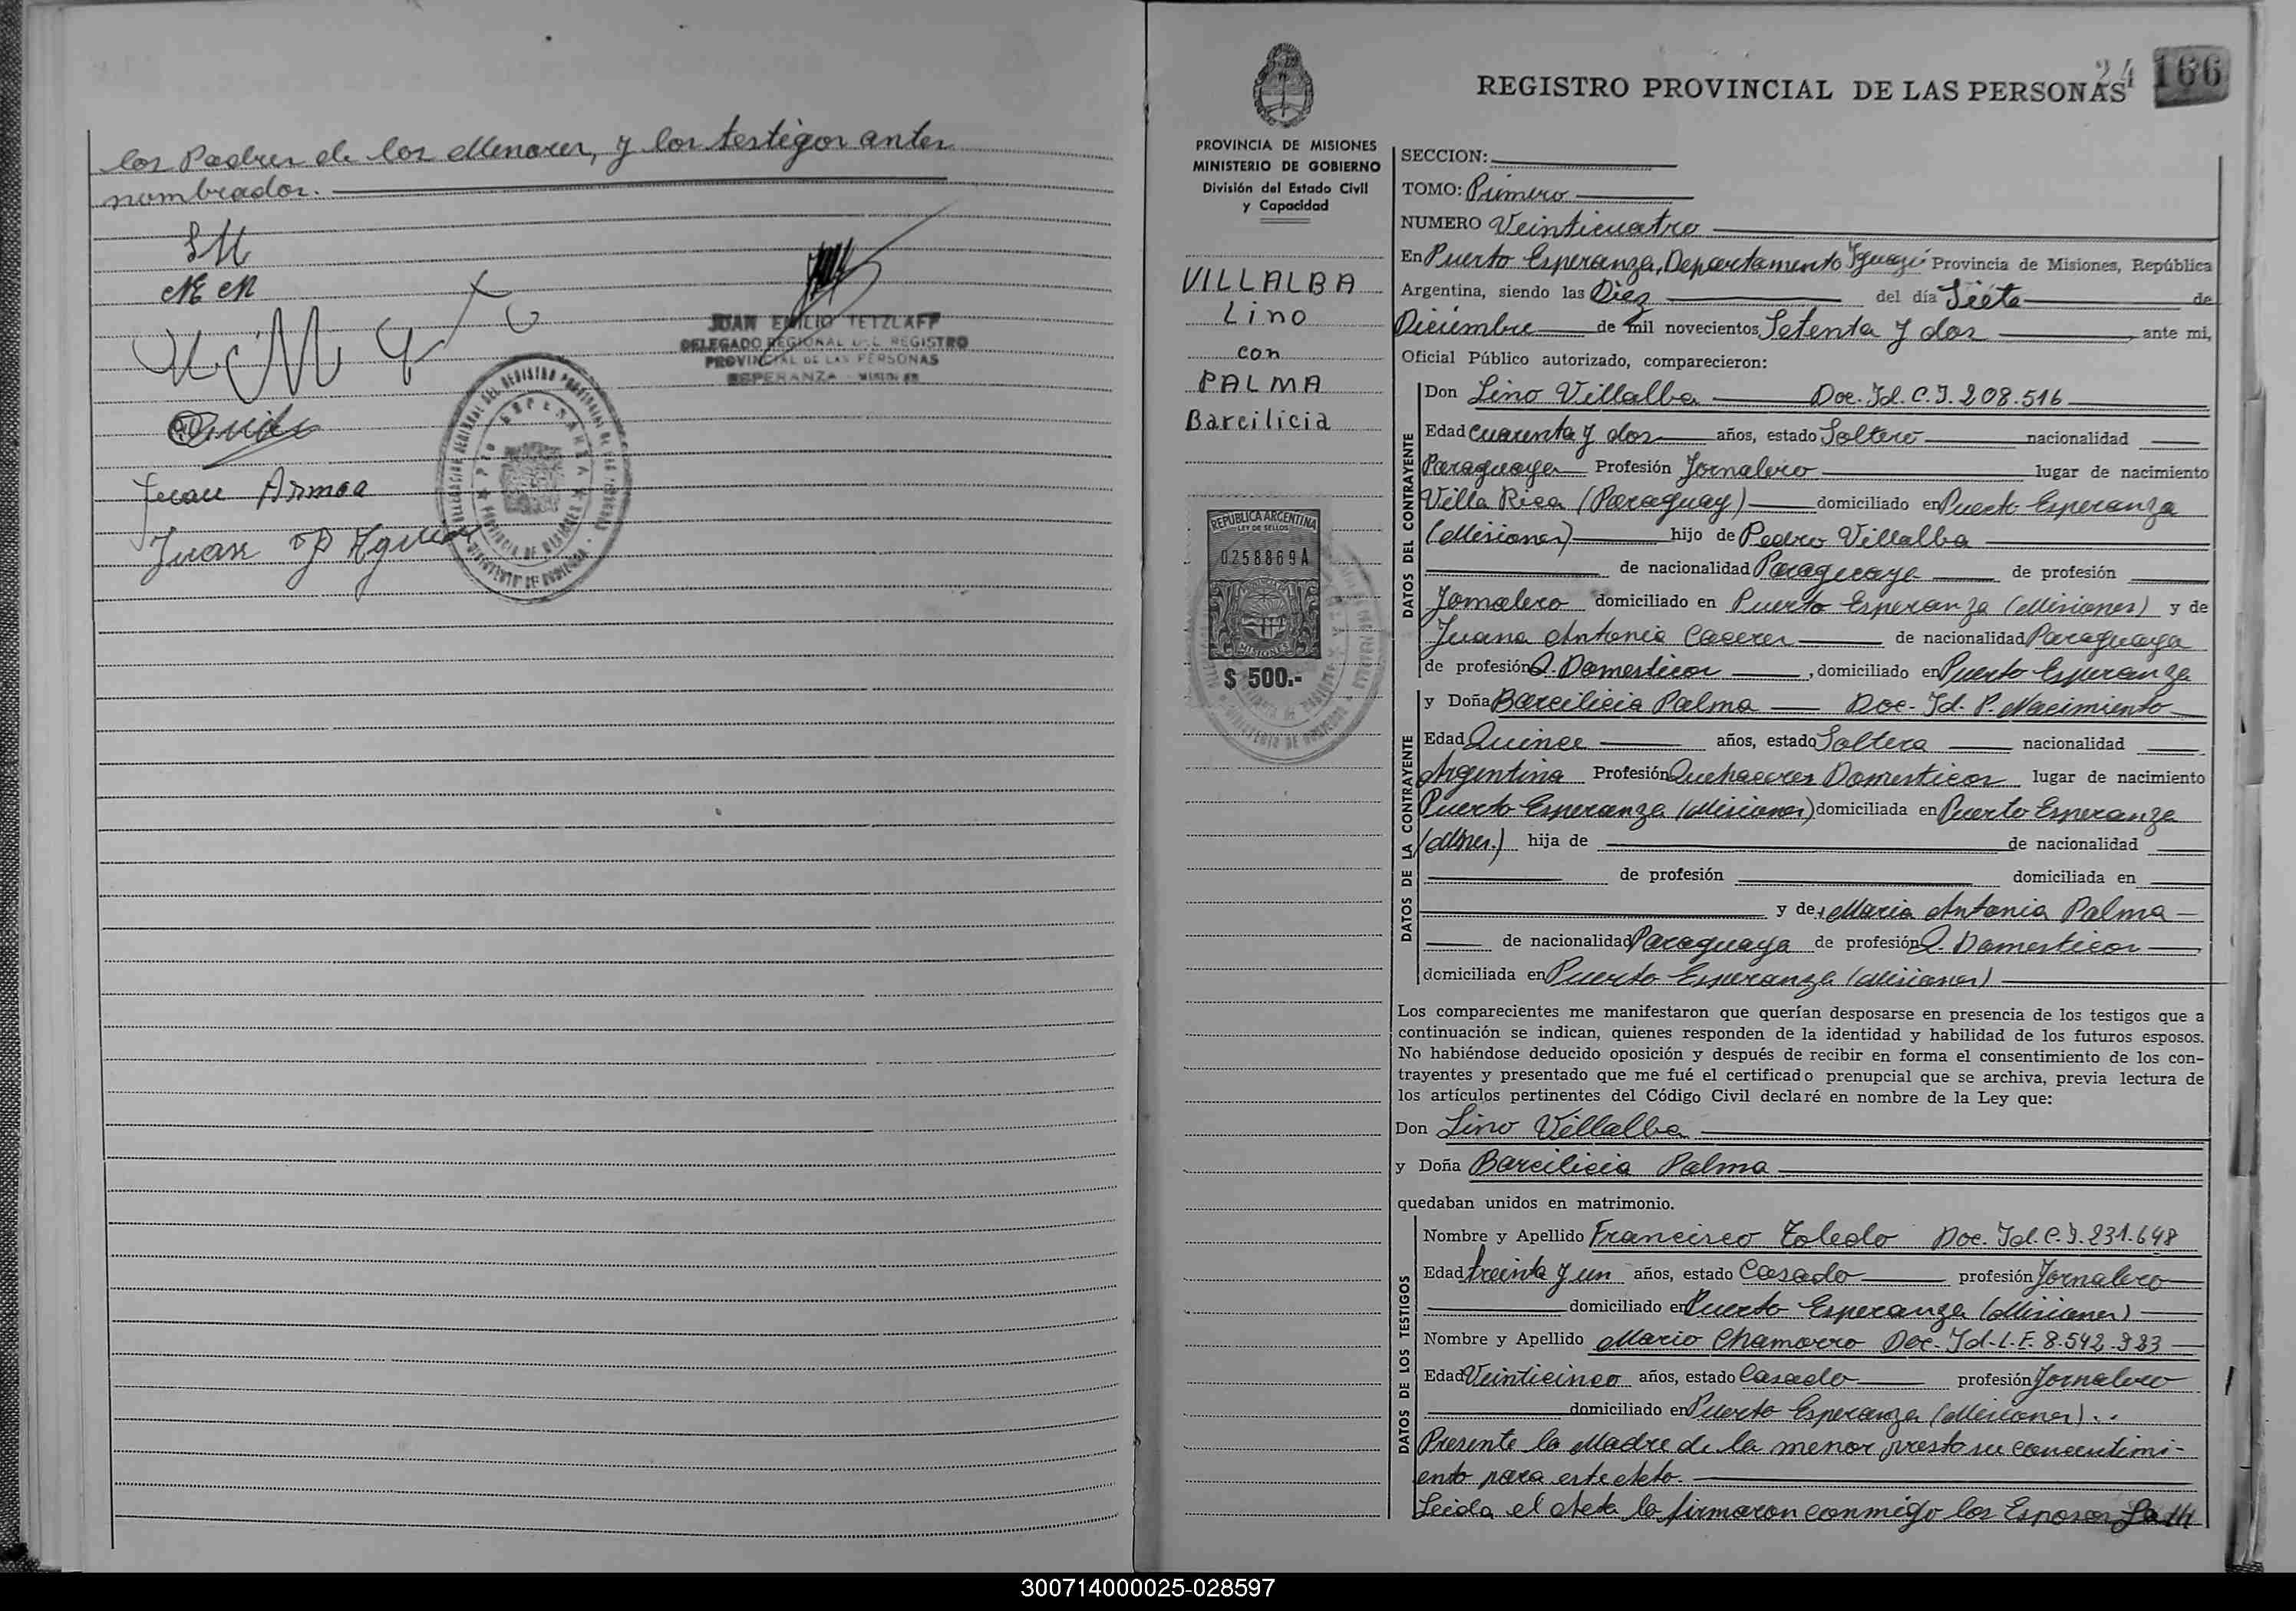 los Padres de los Menores, y los testigos antes
nombrados.
JUAN EMILIO TETZLAFF
DELEGADO REGIONAL DEL REGISTRO
PROVINCIAL DE LAS PERSONAS
ESPERANZA - MISIONES
Juan Armoa
24 166
REGISTRO PROVINCIAL DE LAS PERSONAS
PROVINCIA DE MISIONES
MINISTERIO DE GOBIERNO
División del Estado Civil
y Capacidad
VILLALBA
Lino
con
PALMA
Barcilicia
REPUBLICA ARGENTINA
LEY DE SELLOS
0258869A
MISIONES
$ 500.-
SECCION:
TOMO: Primero
NUMERO Veinticuatro
En Puerto Esperanza, Departamento Iguazú Provincia de Misiones, República
Argentina, siendo las Diez del día Siete de
Diciembre de mil novecientos Setenta y dos ante mi,
Oficial Público autorizado, comparecieron:
DATOS DEL CONTRAYENTE
Don Lino Villalba Doc. Id. C.I. 208.516
Edad Cuarenta y dos años, estado Soltero nacionalidad
Paraguaya Profesión Jornalero lugar de nacimiento
Villa Rica (Paraguay) domiciliado en Puerto Esperanza
(Misiones) hijo de Pedro Villalba
de nacionalidad Paraguaya de profesión
Jornalero domiciliado en Puerto Esperanza (Misiones) y de
Juana Antonia Caceres de nacionalidad Paraguaya
de profesión Q. Domesticos, domiciliado en Puerto Esperanza
DATOS DE LA CONTRAYENTE
y Doña Barcilicia Palma Doc. Id. P. Nacimiento
Edad Quince años, estado Soltera nacionalidad
Argentina Profesión Quehaceres Domesticos lugar de nacimiento
Puerto Esperanza (Misiones) domiciliada en Puerto Esperanza
(Mnes.) hija de de nacionalidad
de profesión domiciliada en
y de Maria Antonia Palma
de nacionalidad Paraguaya de profesión Q. Domesticos,
domiciliada en Puerto Esperanza (Misiones)
Los comparecientes me manifestaron que querían desposarse en presencia de los testigos que a
continuación se indican, quienes responden de la identidad y habilidad de los futuros esposos.
No habiéndose deducido oposición y después de recibir en forma el consentimiento de los con-
trayentes y presentado que me fué el certificado prenupcial que se archiva, previa lectura de
los artículos pertinentes del Código Civil declaré en nombre de la Ley que:
Don Lino Villalba
y Doña Barcilicia Palma
quedaban unidos en matrimonio.
DATOS DE LOS TESTIGOS
Nombre y Apellido Francisco Toledo Doc. Id. C.I. 231.648
Edad treinta y un años, estado Casado profesión Jornalero
domiciliado en Puerto Esperanza (Misiones)
Nombre y Apellido Mario Chamorro Doc. Id. L.E. 8.542.983
Edad Veinticinco años, estado Casado profesión Jornalero
domiciliado en Puerto Esperanza (Misiones)..
Presente la Madre de la menor presto su consentimi-
ento para este Acto.
Leida el Acta la firmaron conmigo los Esposos
300714000025-028597